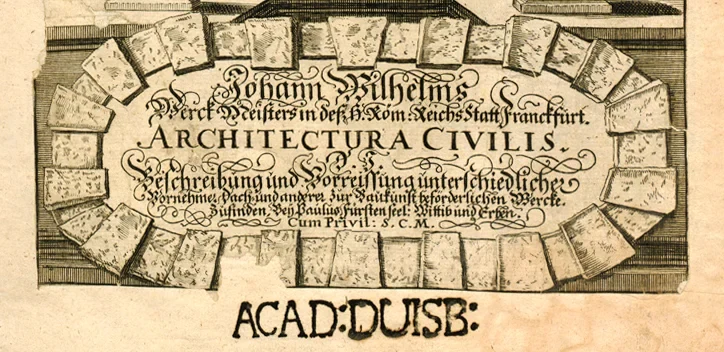 Johann Wilhelms
Werck Meisters in deß H. Röm: Reichs Statt Franckfurt.
ARCHITECTURA CIVILIS.
Beschreibung und Vorreissung unterschiedlicher
Vornehmer Dach und anderer zur Baukunst beförderlichen Wercke.
Zufinden Bey Paulus Fürsten seel: Wittib und Erben.
Cum Privil: S. C. M.
ACAD:DUISB: